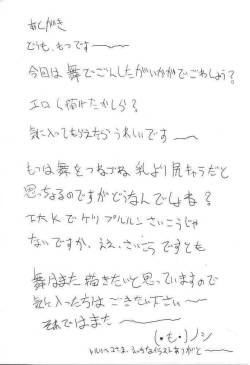 あとがき
どうも、もっです〜〜
今回は舞でごんしたがいかがでごわしょう?
エロく描けたかしら?
気に入ってもらえたらうれしいです〜
もっは舞をつねづね乳より尻キャラだと
思っちょるのですがどうなんでしょね?
エエ、さいこうですとも
舞はまた描きたいと思っていますので
気に入った方はごきたい下さい〜
それではまた〜〜
(・も・)ノシ